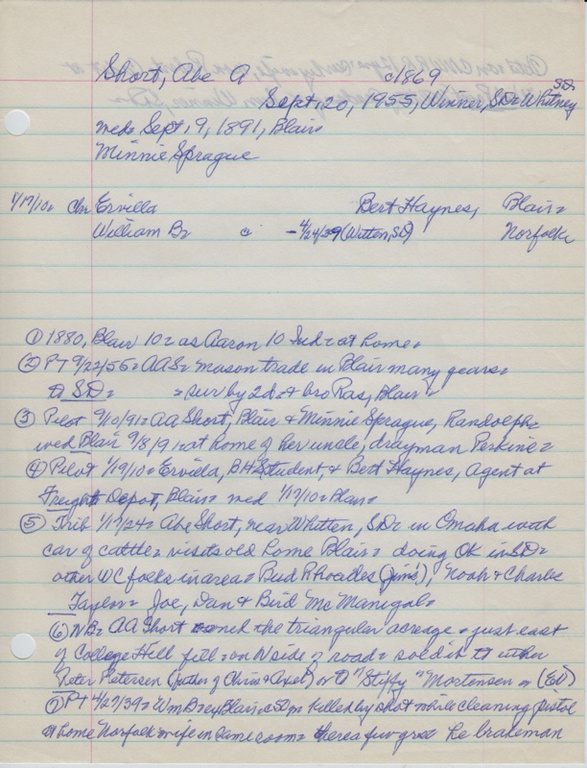 Short, Abe A c1869
Sept. 20, 1955, Winner, SD= Whitney SD=
med= Sept, 9, 1891, Blair=
Minnie Sprague
1/17/10= Chn Ervilla Bert Haynes, Blair=
William B= c - 4/24/39 (Witten, SD) Norfolk=
① 1880, Blair 10= as Aaron 10 Ind= at home=
② PT 9/22/55= AAS= mason trade in Blair many years=
SD= = sur by 2d= & bro Ras, Blair=
③ Pilot 9/10/91= AA Short, Blair & Minnie Sprague, Randolph=
wed Blair 9/8/91= at home of her uncle, drayman Perkins=
④ Pilot 1/19/10= Ervilla, BH Student, & Bert Haynes, agent at
Freight Depot, Blair= med 1/17/10=
⑤ Trib 1/17/24= Abe Short, near Whitten, SD= in Omaha with
car of cattle= visits old home Blair= doing OK in SD=
other WC folks in area= Bud Rhoades (Jim's), Noah & Charlie
Taylor= Joe, Dan & Bird McManigal=
⑥ NB= AA Short owned the triangular acreage = just east
of College Hill = on N side of road= sold it to either
Peter Petersen (father of Chris & Axel) or to "Stiffy" Mortensen = (Ed)
⑦ PT 4/27/39= Wm B= ex Blair, killed by shot while cleaning pistol
at home Norfolk= wife in same room= he brakeman